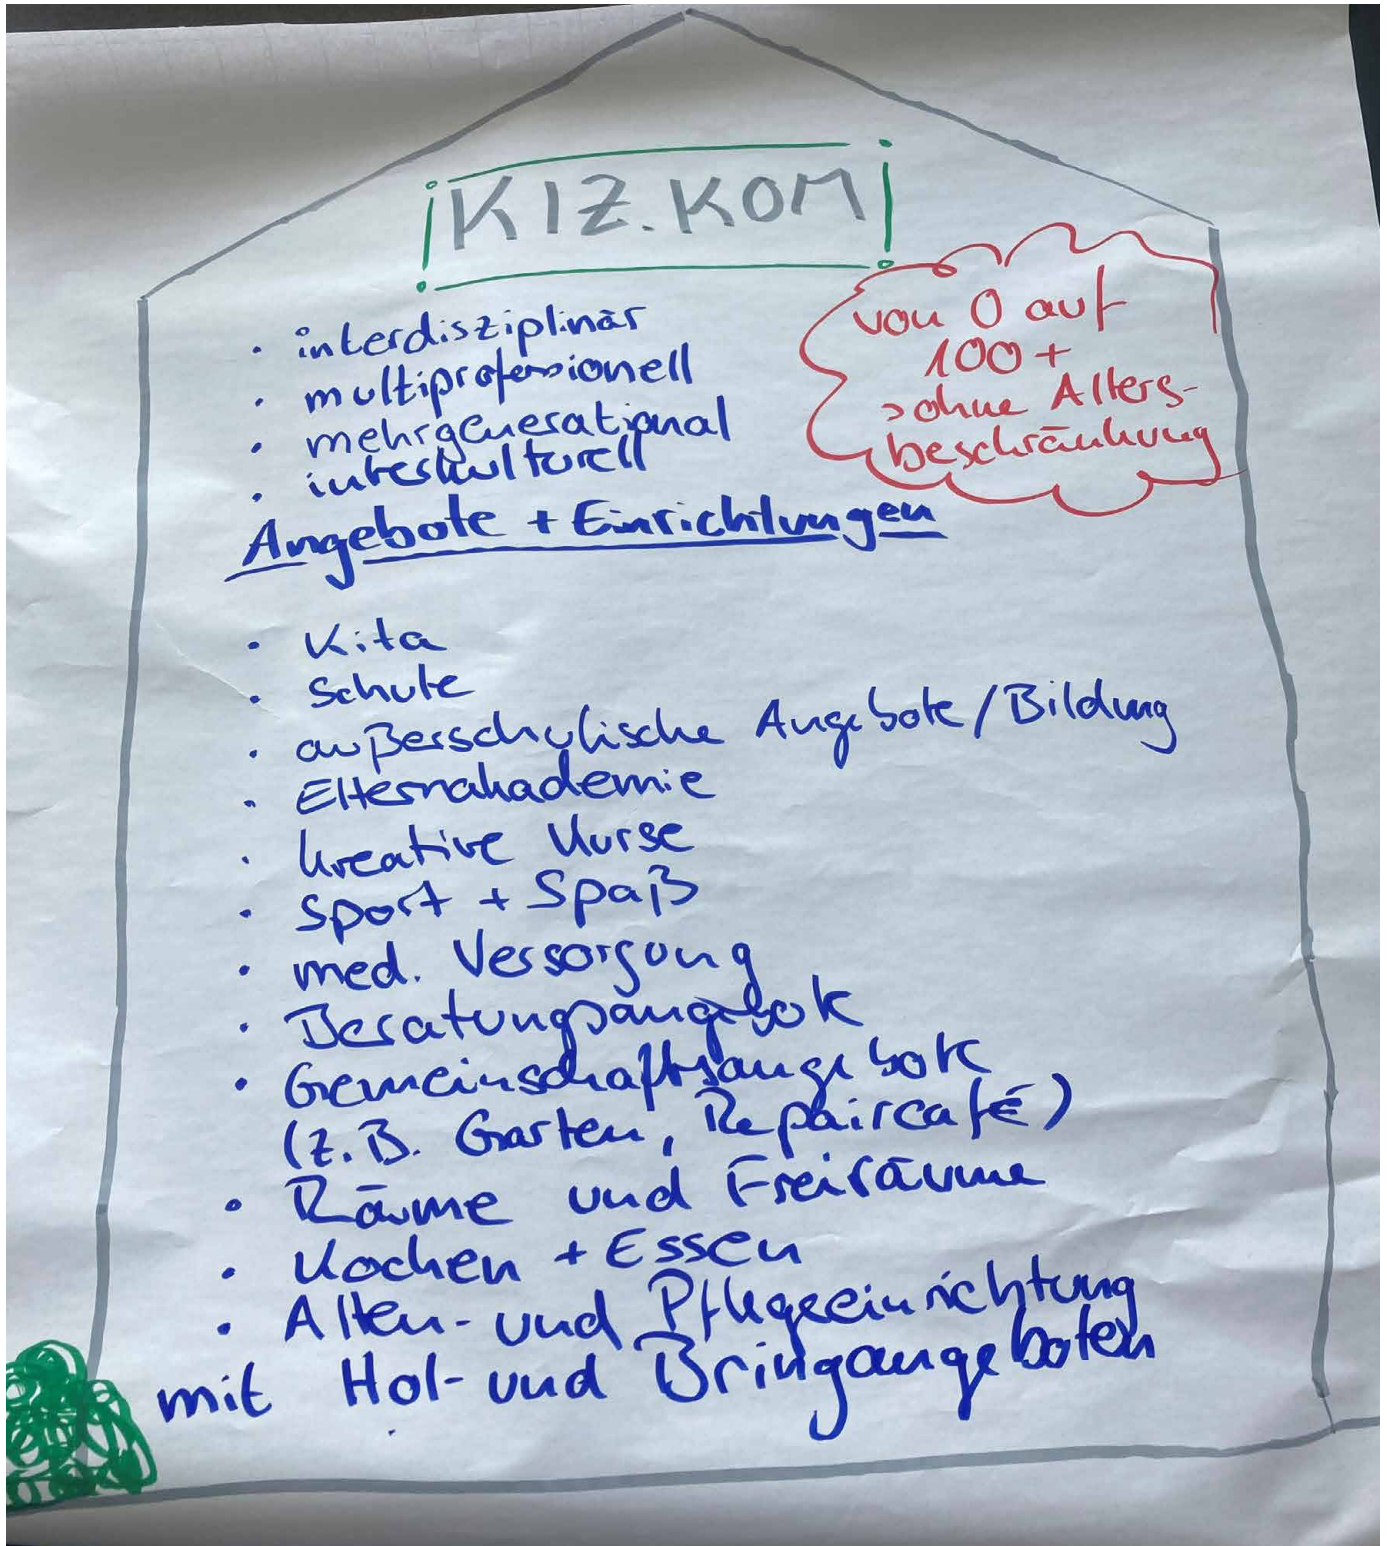 KIZ.KOM
von 0 auf
100+
> ohne Alters-
beschränkung
· interdisziplinär
· multiprofessionell
· mehrgenerational
· interkulturell
Angebote + Einrichtungen
· Kita
· Schule
· außerschulische Angebote/Bildung
· Elternakademie
· kreative Kurse
· Sport + Spaß
· med. Versorgung
· Beratungsangebote
· Gemeinschaftsangebote
(z.B. Garten, Repaircafé)
· Räume und Freiräume
· Kochen + Essen
· Alten- und Pflegeeinrichtung
mit Hol- und Bringangeboten